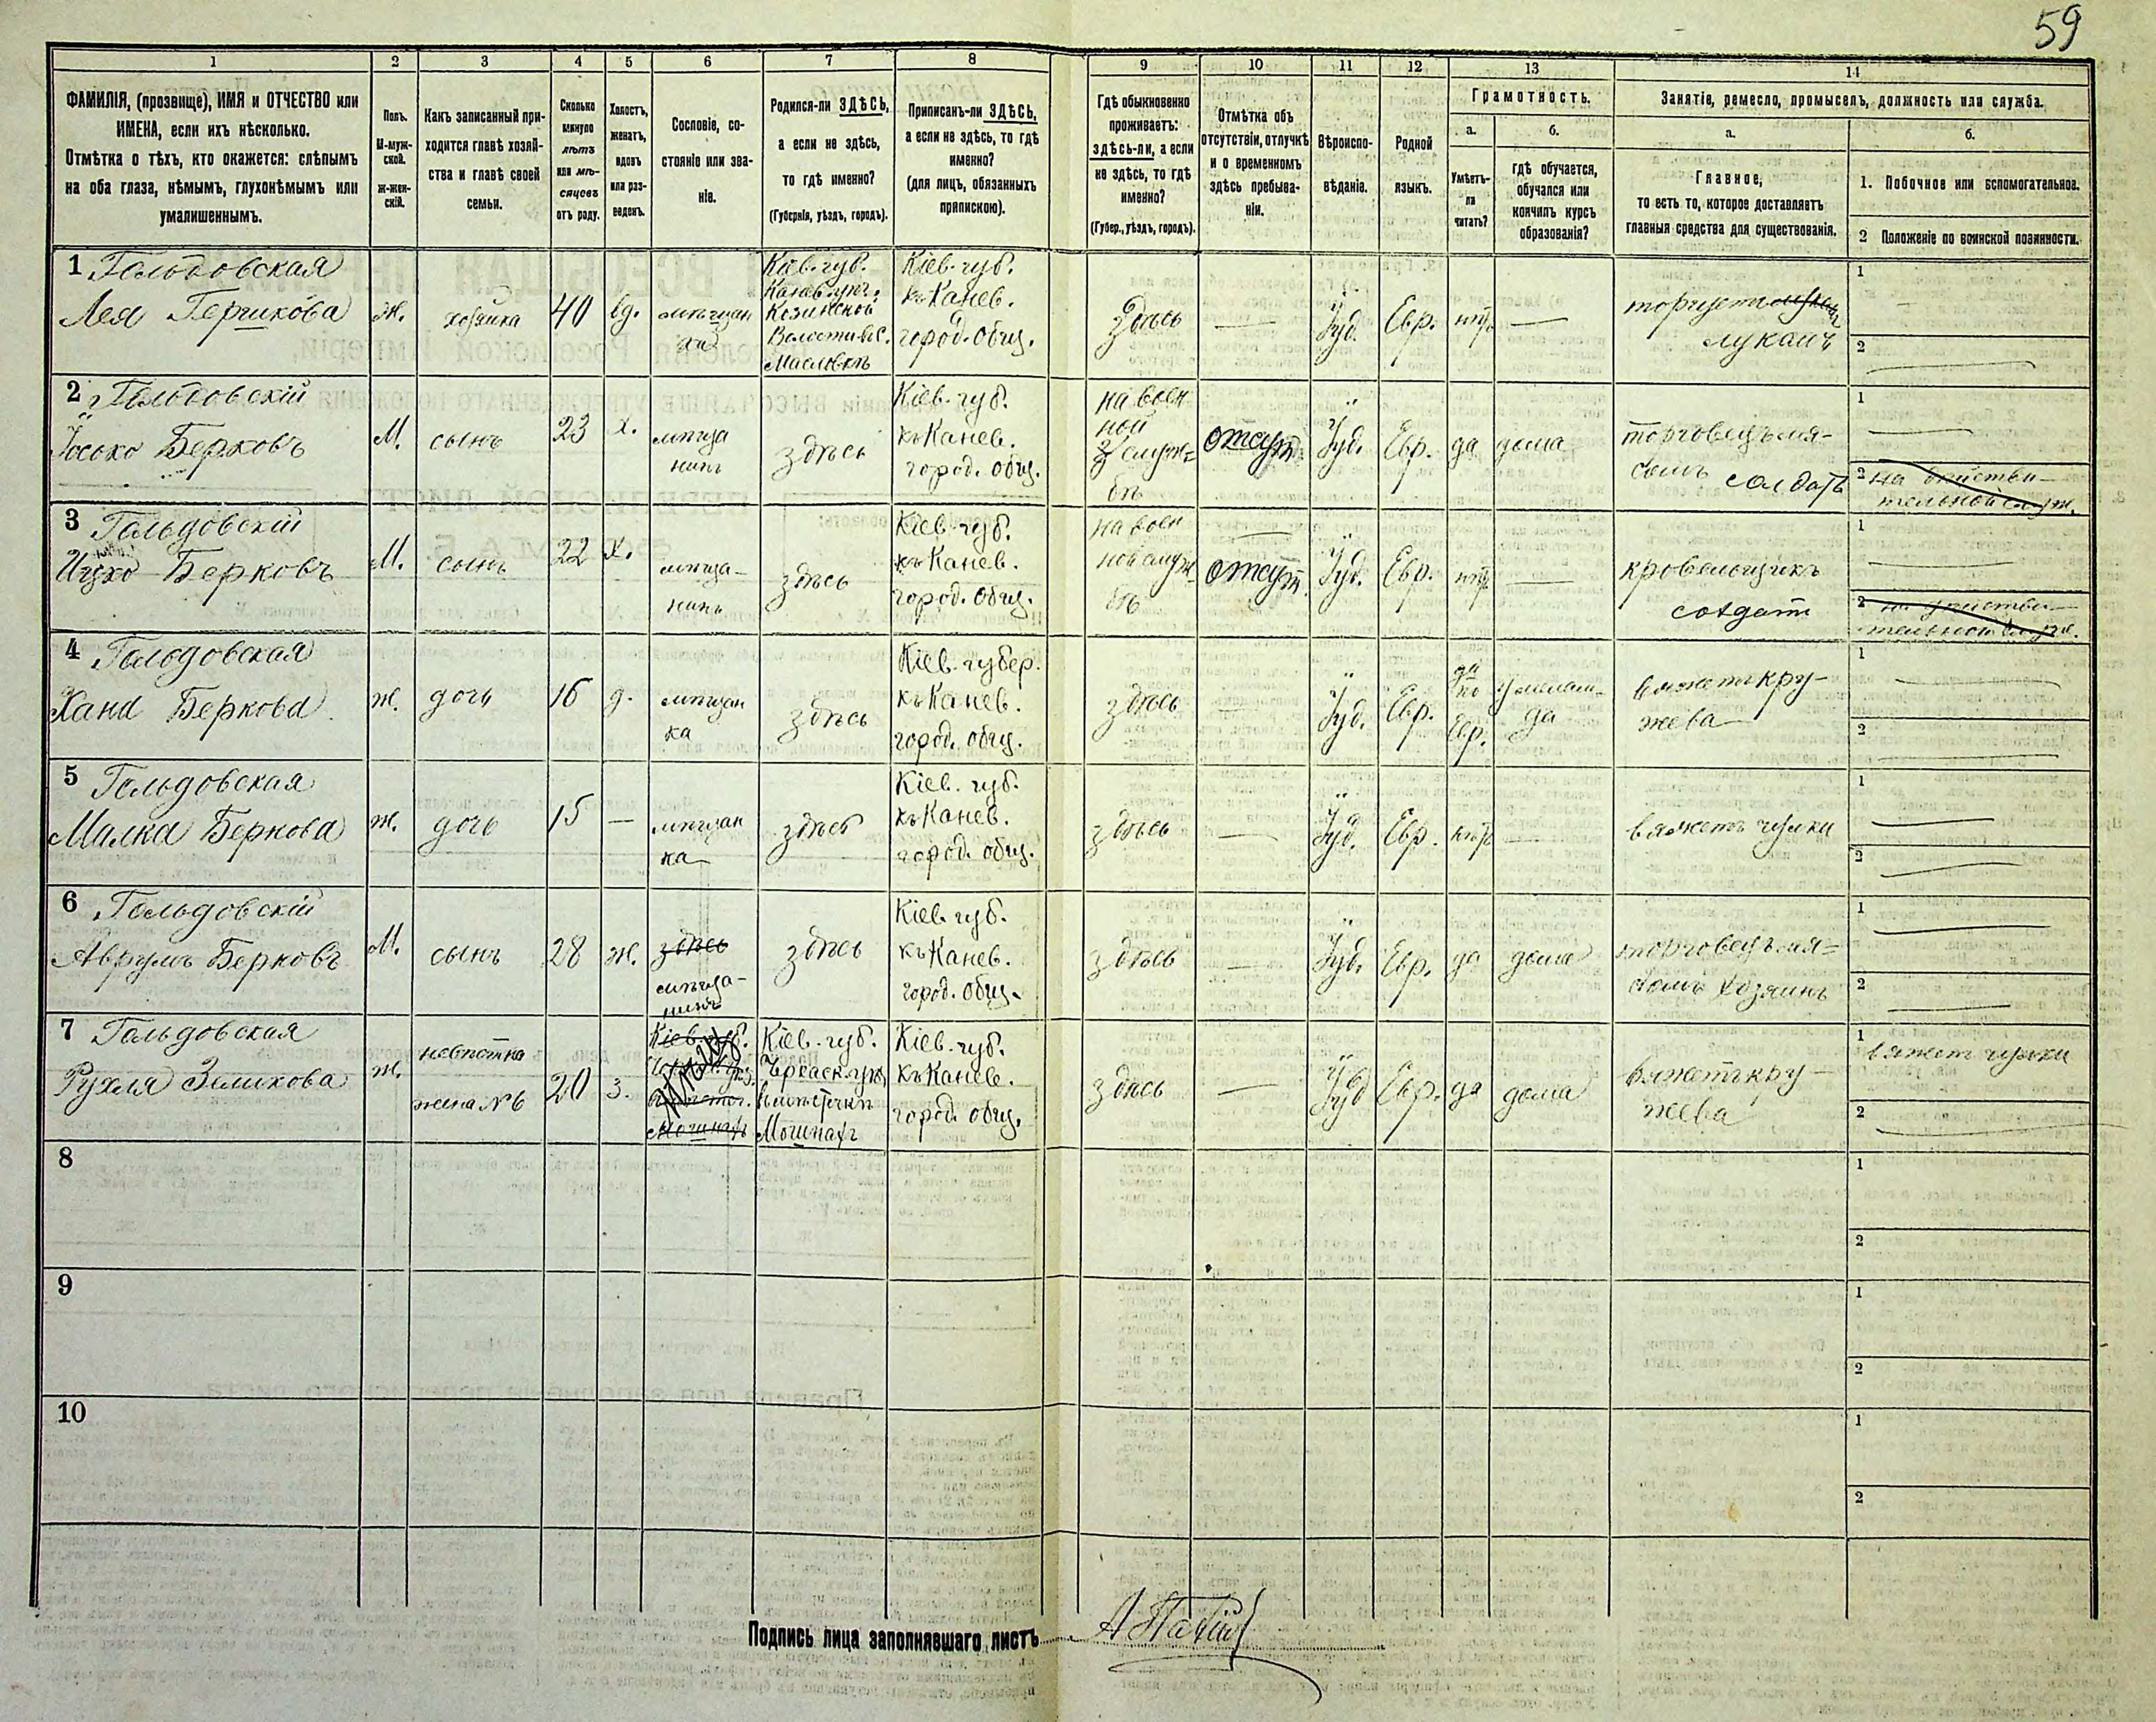 59
1 2 3 4 5 6 7 8 9 10 11 12 13 14
ФАМИЛІЯ, (прозвище), ИМЯ и ОТЧЕСТВО или
ИМЕНА, если ихъ нѣсколько.
Отмѣтка о тѣхъ, кто окажется: слѣпымъ
на оба глаза, нѣмымъ, глухонѣмымъ или
умалишеннымъ.
Полъ.
М-муж-
ской.
ж-жен-
скій.
Какъ записанный при-
ходится главѣ хозяй-
ства и главѣ своей
семьи.
Сколько
минуло
лѣтъ
или мѣ-
сяцевъ
отъ роду.
Холостъ,
женатъ,
вдовъ
или раз-
веденъ.
Сословіе, со-
стояніе или зва-
ніе.
Родился-ли ЗДѢСЬ,
а если не здѣсь,
то гдѣ именно?
(Губернія, уѣздъ, городъ).
Приписанъ-ли ЗДѢСЬ,
а если не здѣсь, то гдѣ
именно?
(для лицъ, обязанныхъ
припискою).
Гдѣ обыкновенно
проживаетъ:
здѣсь-ли, а если
не здѣсь, то гдѣ
именно?
(Губер., уѣздъ, городъ).
Отмѣтка объ
отсутствіи, отлучкѣ
и о временномъ
здѣсь пребыва-
ніи.
Вѣроиспо-
вѣданіе.
Родной
языкъ.
Грамотность.
а.
Умѣетъ-
ли
читать?
б.
гдѣ обучается,
обучался или
кончилъ курсъ
образованія?
Занятіе, ремесло, промыселъ, должность или служба.
а.
Главное,
то есть то, которое доставляетъ
главныя средства для существованія.
б.
1. Побочное или вспомогательное.
2 Положеніе по воинской повинности.
1 Гольдовская
Лея Гершкова
ж.
хозяйка
40
вд.
мѣщан
ка
Кіев. губ.
Канев. уѣз.
Козинской
Волости в с.
Масловкѣ
Кіев. губ.
къ Канев.
город. общ.
Здѣсь
—
Іуд.
Евр.
нѣтъ
—
торгуетъ
лукомъ
1
2
2 Гольдовскій
Іосько Берковъ
М.
сынъ
23
х.
мѣща
нинъ
здѣсь
Кіев. губ.
къ Канев.
город. общ.
на воен
ной
служ=
бѣ
отсут.
Іуд.
Евр.
да
дома
торговецъ мя-
сомъ солдатъ
1
2 на дѣйстви-
тельной служ.
3 Гольдовскій
Ицко Берковъ
М.
сынъ
22
х.
мѣща-
нинъ
здѣсь
Кіев. губ.
къ Канев.
город. общ.
на воен
ной служ
бѣ
отсут.
Іуд.
Евр.
нѣтъ
—
кровельщикъ
солдатъ
1
2 на дѣйстви-
тельной служ.
4 Гольдовская
Хана Беркова
ж.
дочь
16
д.
мѣщан
ка
здѣсь
Кіев. губер.
къ Канев.
город. общ.
здѣсь
—
Іуд.
Евр.
да
по
Евр.
у мелам-
да
вяжетъ кру-
жева
1
2
5 Гольдовская
Малка Беркова
ж.
дочь
15
—
мѣщан
ка
здѣсь
Кіев. губ.
къ Канев.
город. общ.
здѣсь
—
Іуд.
Евр.
нѣтъ
—
вяжетъ чулки
1
2
6 Гольдовскій
Аврумъ Берковъ
М.
сынъ
28
ж.
здѣсь
мѣща-
нинъ
здѣсь
Кіев. губ.
къ Канев.
город. общ.
здѣсь
—
Іуд.
Евр.
да
дома
торговецъ мя=
сомъ хозяинъ
1
2
7 Гольдовская
Рухля Зеликова
ж.
невѣстка
жена №6
20
з.
Кіев. губ.
Мошнахъ
Кіев. губ.
Черкаск. уѣз.
в мѣстечкѣ
Мошнахъ
Кіев. губ.
къ Канев.
город. общ.
здѣсь
—
Іуд
Евр.
да
дома
вяжетъ кру-
жева
1 вяжет чулки
2
8
1
2
9
1
2
10
1
2
Подпись лица заполнявшаго листъ